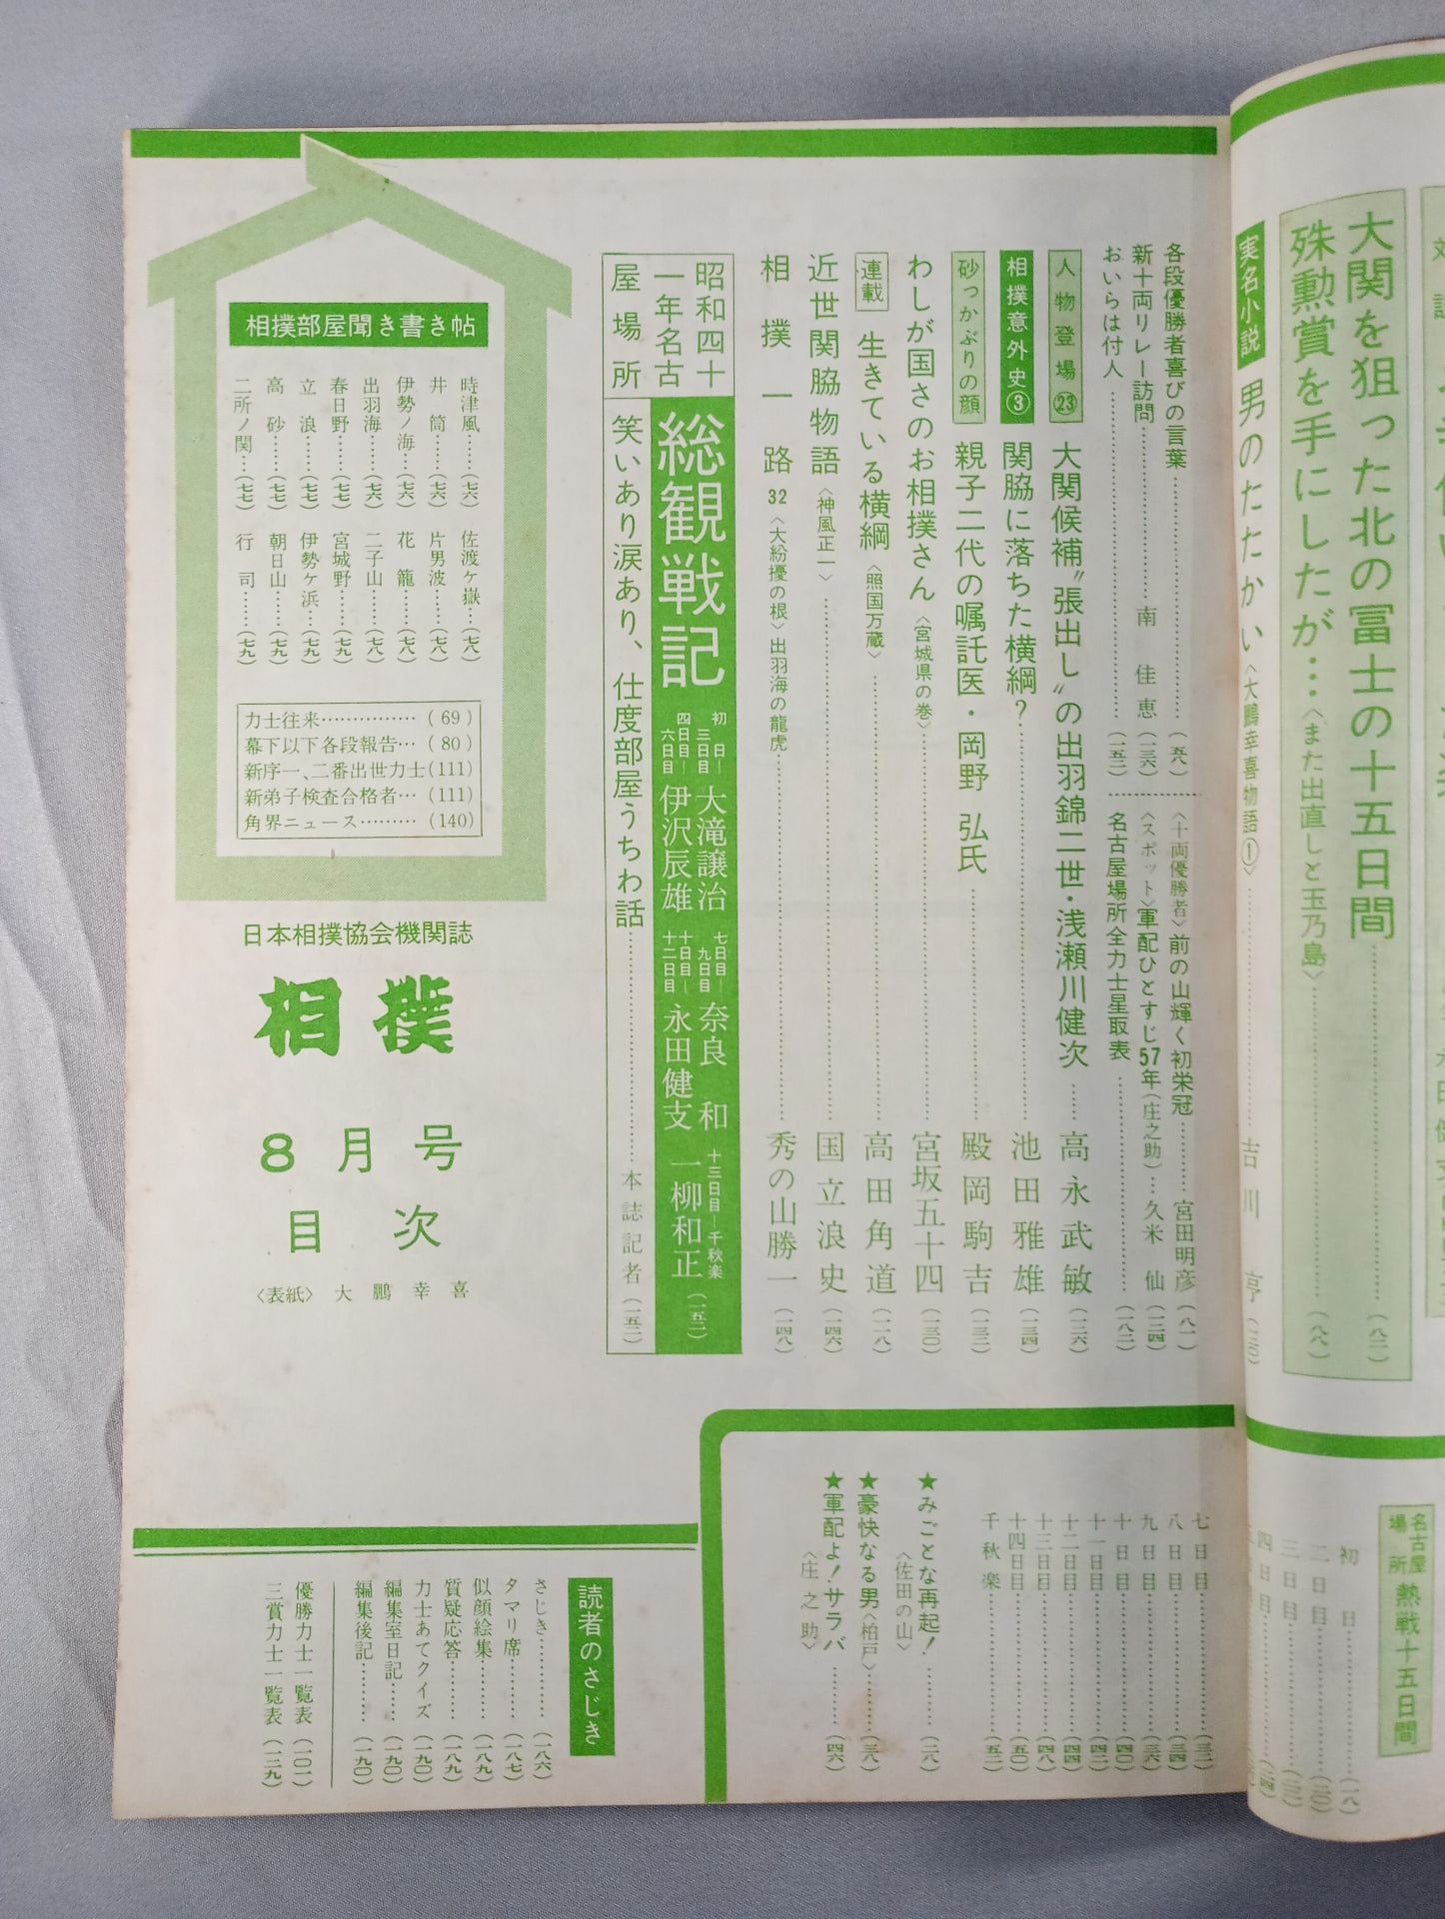 大関を狙った北の冨士の十五日間
殊勲賞を手にしたが…〈また出直しと玉乃島〉……(八八)
実名小説 男のたたかい〈大鵬幸喜物語①〉……吉川 亨
各段優勝者喜びの言葉……(五八)
新十両リレー訪問……南 佳恵(一三六)
おいらは付人……(一五二)
〈十両優勝者〉前の山輝く初栄冠……宮田明彦(八一)
〈スポット〉軍配ひとすじ57年(庄之助)…久米 仙(一二四)
名古屋場所全力士星取表……(一八二)
人物登場㉓ 大関候補〝張出し〟の出羽錦二世・浅瀬川健次……高永武敏(一三六)
相撲意外史③ 関脇に落ちた横綱?……池田雅雄(一三四)
砂っかぶりの顔 親子二代の嘱託医・岡野 弘氏……殿岡駒吉(一三三)
わしが国さのお相撲さん〈宮城県の巻〉……宮坂五十四(一三〇)
連載 生きている横綱〈照国万蔵〉……高田角道(一一八)
近世関脇物語〈神風正一〉……国立浪史(一四六)
相撲一路 32〈大紛擾の根〉出羽海の龍虎……秀の山勝一(一四八)
昭和四十一年名古屋場所
総観戦記
初日―三日目 大滝譲治
四日目―六日目 伊沢辰雄
七日目―九日目 奈良 和
十日目―十二日目 永田健支
十三日目―千秋楽 一柳和正(一五二)
笑いあり涙あり、仕度部屋うちわ話……本誌記者(一五二)
相撲部屋聞き書き帖
時津風……(七六)
井筒……(七六)
伊勢ノ海…(七六)
出羽海……(七六)
春日野……(七七)
立浪……(七七)
高砂……(七七)
二所ノ関…(七七)
佐渡ケ嶽…(七八)
片男波……(七八)
花籠……(七八)
二子山……(七八)
宮城野……(七九)
伊勢ケ浜…(七九)
朝日山……(七九)
行司……(七九)
力士往来……………(69)
幕下以下各段報告…(80)
新序一、二番出世力士(111)
新弟子検査合格者…(111)
角界ニュース………(140)
日本相撲協会機関誌
相撲
8月号
目次
〈表紙〉 大鵬幸喜
名古屋場所 熱戦十五日間
初日……(一八)
二日目……(二〇)
三日目……(二二)
四日目……(二四)
七日目……(三二)
八日目……(三四)
九日目……(三六)
十日目……(四〇)
十一日目……(四二)
十二日目……(四四)
十三日目……(四八)
十四日目……(五〇)
千秋楽……(五二)
★みごとな再起!……(二八)
〈佐田の山〉
★豪快なる男〈柏戸〉……(三八)
★軍配よ!サラバ……(四六)
〈庄之助〉
読者のさじき
さじき……(一八六)
タマリ席……(一八七)
似顔絵集……(一八九)
質疑応答……(一八九)
力士あてクイズ(一九〇)
編集室日記……(一九〇)
編集後記……(一九〇)
優勝力士一覧表(一〇二)
三賞力士一覧表(一三九)